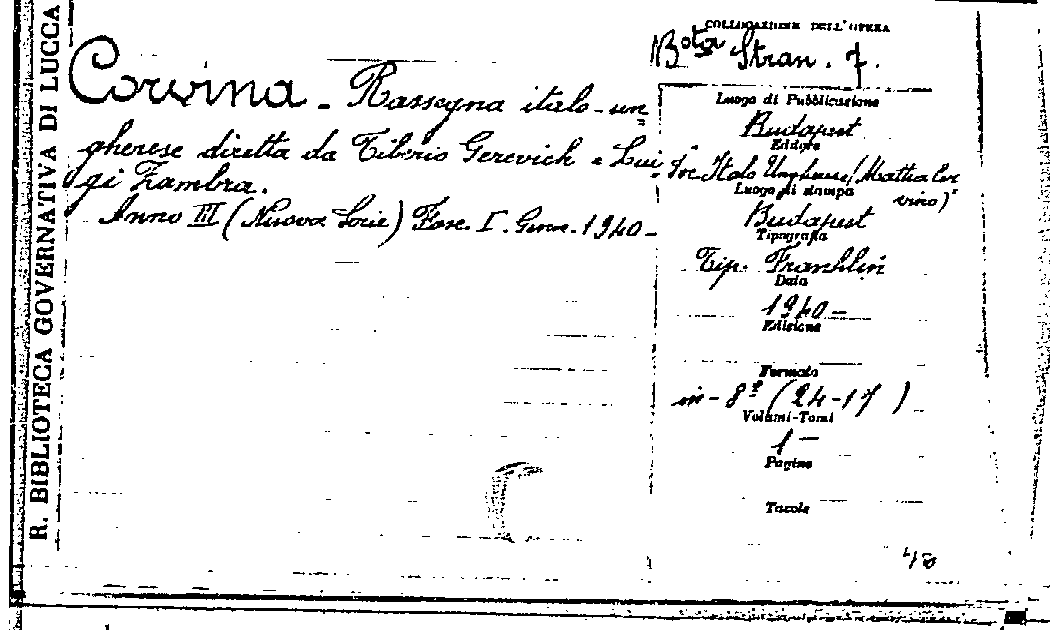 R. BIBLIOTECA GOVERNATIVA DI LUCCA
COLLOCAZIONE DELL'OPERA
Bta Stran. 7.
Corvina - Rassegna italo-un
gherese diretta da Tiberio Gerevich e Lui
gi Zambra.
Anno III (Nuova Serie) Fasc. I. Genn. 1940-
Luogo di Pubblicazione
Budapest
Editore
Soc. Italo Ungherese "Mattia Cor
vino"
Luogo di stampa
Budapest
Tipografia
Tip. Franklin
Data
1940-
Edizione
Formato
in-8º (24-17)
Volumi-Tomi
1-
Pagine
Tavole